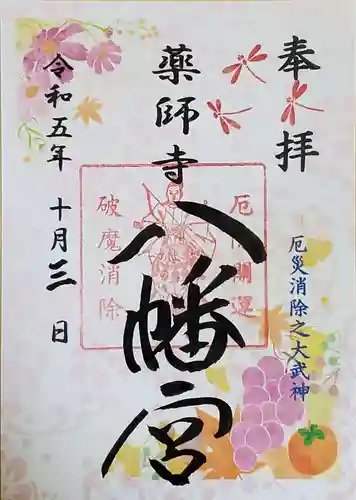 奉拝
厄災消除之大武神
薬師寺
八幡宮
厄除開運
破魔消除
令和五年 十月三日